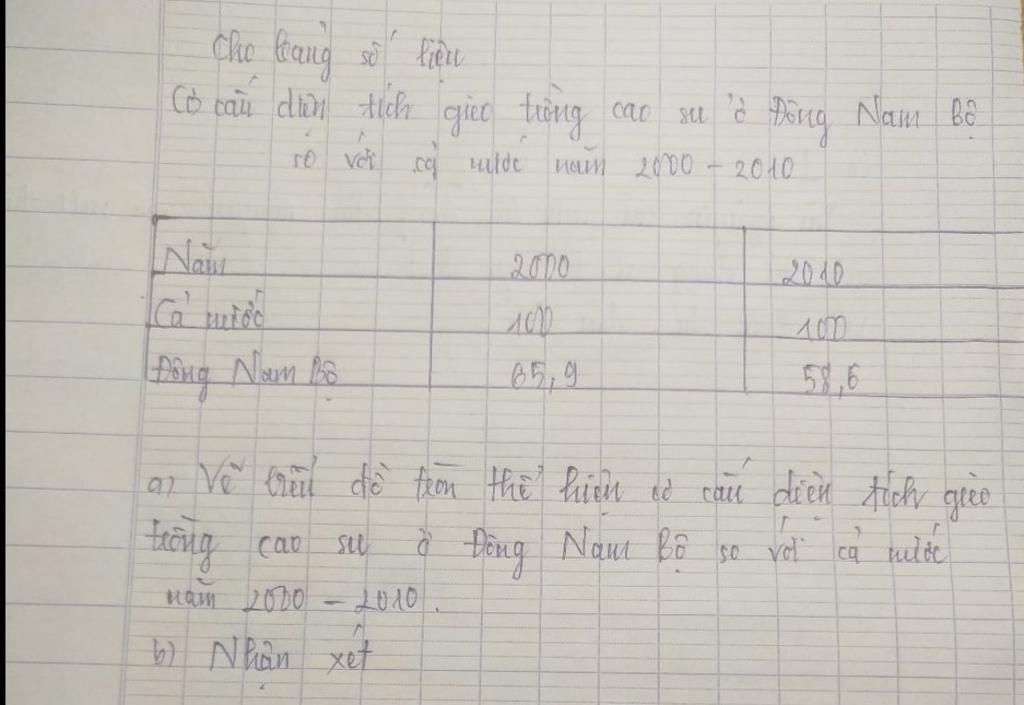 Cho bảng số liệu
Cơ cấu diện tích gieo trồng cao su ở Đông Nam Bộ
so với cả nước năm 2000 - 2010
Năm 2000 2010
Cả nước 100 100
Đông Nam Bộ 65,9 58,6
a) Vẽ biểu đồ tròn thể hiện cơ cấu diện tích gieo
trồng cao su ở Đông Nam Bộ so với cả nước
năm 2000 - 2010.
b) Nhận xét